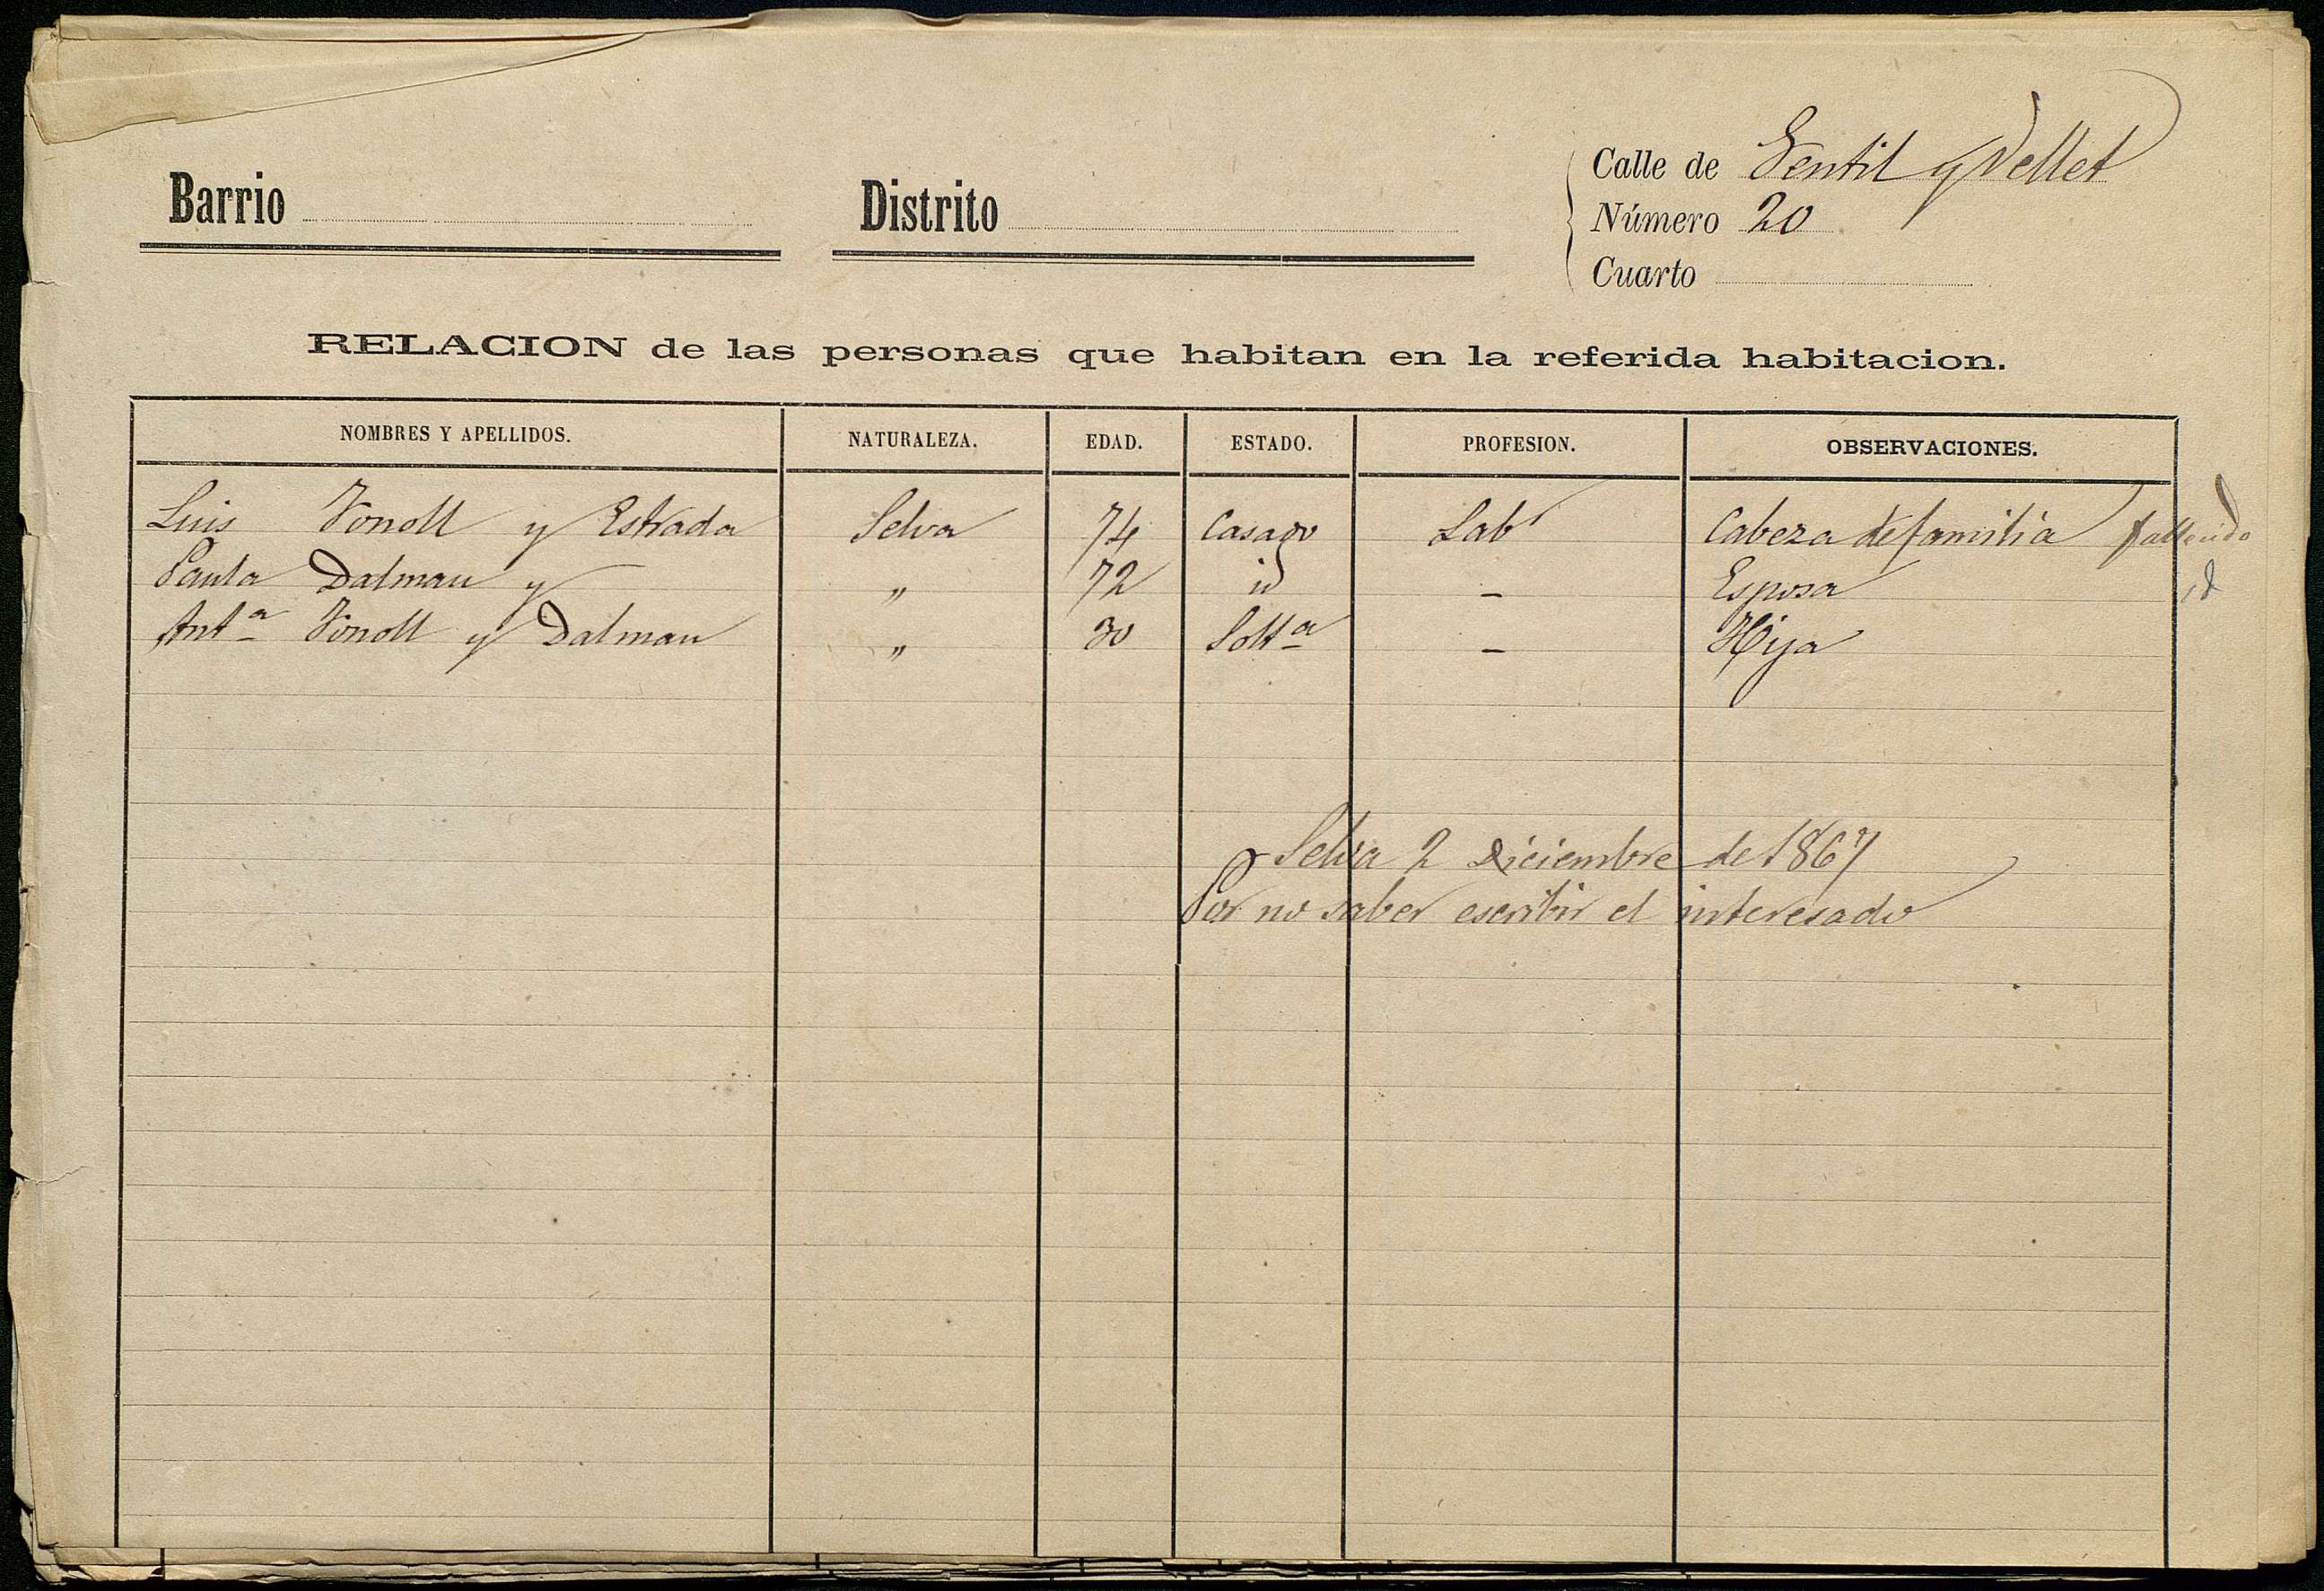 Barrio
Distrito
Calle de Gentil y Vellet
Número 20
Cuarto
RELACION de las personas que habitan en la referida habitacion.
NOMBRES Y APELLIDOS. NATURALEZA. EDAD. ESTADO. PROFESION. OBSERVACIONES.
Luis Vonoll y Estrada Selva 74 Casado Labr Cabeza de familia fallecido
Paula Dalmau y " 72 id - Esposa id
Antª Vonoll y Dalmau " 30 Soltª - Hija
Selva 2 Diciembre de 1867
Por no saber escribir el interesado